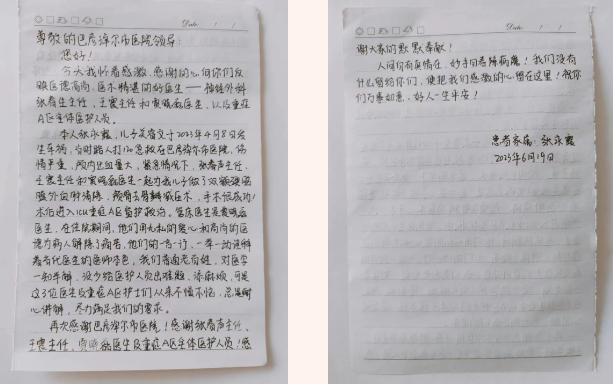 Date / /
尊敬的巴彦淖尔市医院领导:
您好!
今天我怀着感激、感谢的心向你们反
映医德高尚、医术精湛的好医生——神经外科
张春生主任、王震主任和 医生,以及重症
A区全体医护人员。
本人张永霞,儿子 于2023年4月8日发
生车祸,当时路人打120急救在巴彦淖尔市医院,伤
情严重,颅内出血量大,紧急情况下,张春声主任、
王震主任和 医生一起为我儿子做了双额硬膜
外血肿清除,颅骨去骨瓣减压术,手术很成功!
术后进入ICU重症A区监护救治。管床医生是
医生,在住院期间,他们用无私的爱心和高尚的医
德为病人解除了病害,他们的一言一行、一举一动诠释
着当代医生的医师本色,我们普通老百姓,对医学
一知半解,没少给医护人员出难题、添麻烦,可是
这3位医生及重症A区护士们从来不慌不恼,总是耐
心讲解,尽力满足我们的要求。
再次感谢巴彦淖尔市医院!感谢张春声主任、
王震主任、 医生及重症A区全体医护人员!感
Date / /
谢大家的默默奉献!
人间仁有真情在,妙手回春除病魔!我们没有
什么留给你们,便把我们感激的心留在这里!祝你
们万事如意,好人一生平安!
患者家属:张永霞
2023年6月19日